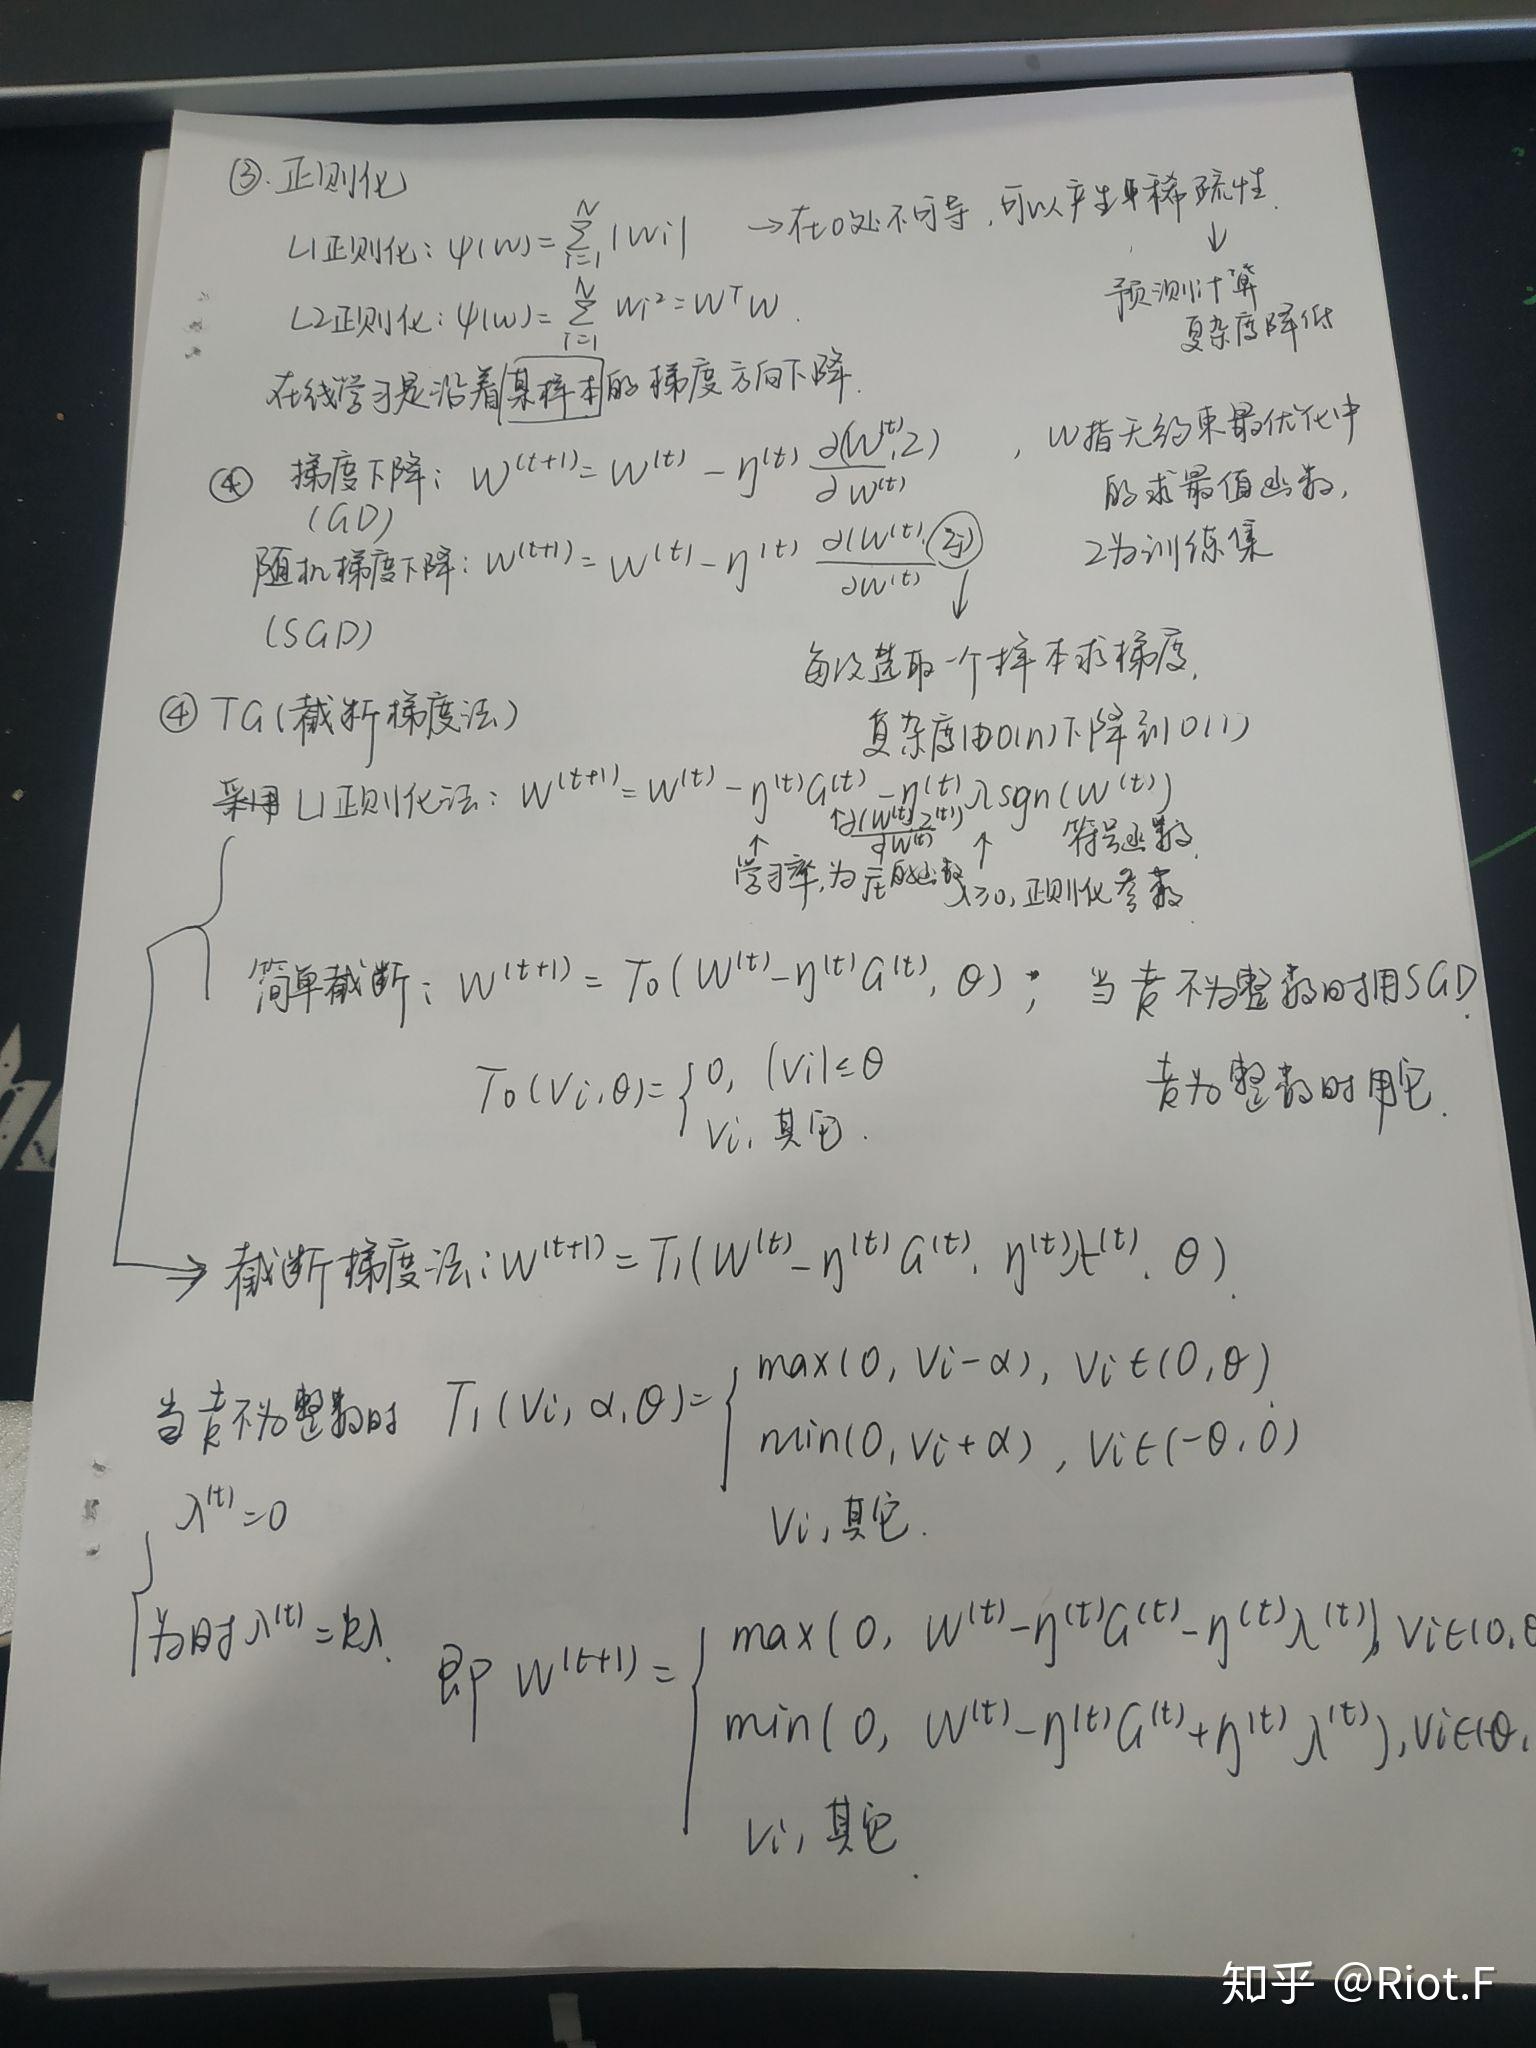 ③.正则化
L1正则化: ψ(W)=∑_{i=1}^{N}|Wi| →在0处不可导,可以产生稀疏性.
↓
预测计算
复杂度降低
L2正则化: ψ(W)=∑_{i=1}^{N} Wi²=WᵀW.
在线学习是沿着某样本的梯度方向下降.
④ 梯度下降: W^(t+1)=W^(t)-η^(t) ∂(W^(t),Z)/∂W^(t) , W指无约束最优化中
(GD) 的求最值函数,
Z为训练集
随机梯度下降: W^(t+1)=W^(t)-η^(t) ∂(W^(t),Zj)/∂W^(t)
(SGD)
↓
每次选取一个样本求梯度,
复杂度由O(n)下降到O(1)
④ TG(截断梯度法)
L1正则化法: W^(t+1)=W^(t)-η^(t)G^(t)-η^(t)λsgn(W^(t))
↑ ∂(W^(t),Z^(t))/∂W^(t) ↑ 符号函数
学习率,为 的函数 λ≥0,正则化参数
简单截断: W^(t+1)=T₀(W^(t)-η^(t)G^(t),θ); 当 不为整数时用SGD.
T₀(Vi,θ)={0, |Vi|≤θ
Vi, 其它.
为整数时用它.
→ 截断梯度法: W^(t+1)=T₁(W^(t)-η^(t)G^(t),η^(t)λ^(t),θ).
当 不为整数时 T₁(Vi,α,θ)={max(0,Vi-α), Vi∈(0,θ)
min(0,Vi+α), Vi∈(-θ,0)
λ^(t)=0
Vi,其它.
为时λ^(t)=kλ.
即 W^(t+1)={max(0, W^(t)-η^(t)G^(t)-η^(t)λ^(t)), Vi∈(0,θ
min(0, W^(t)-η^(t)G^(t)+η^(t)λ^(t)),Vi∈(-θ,
Vi,其它.
知乎 @Riot.F